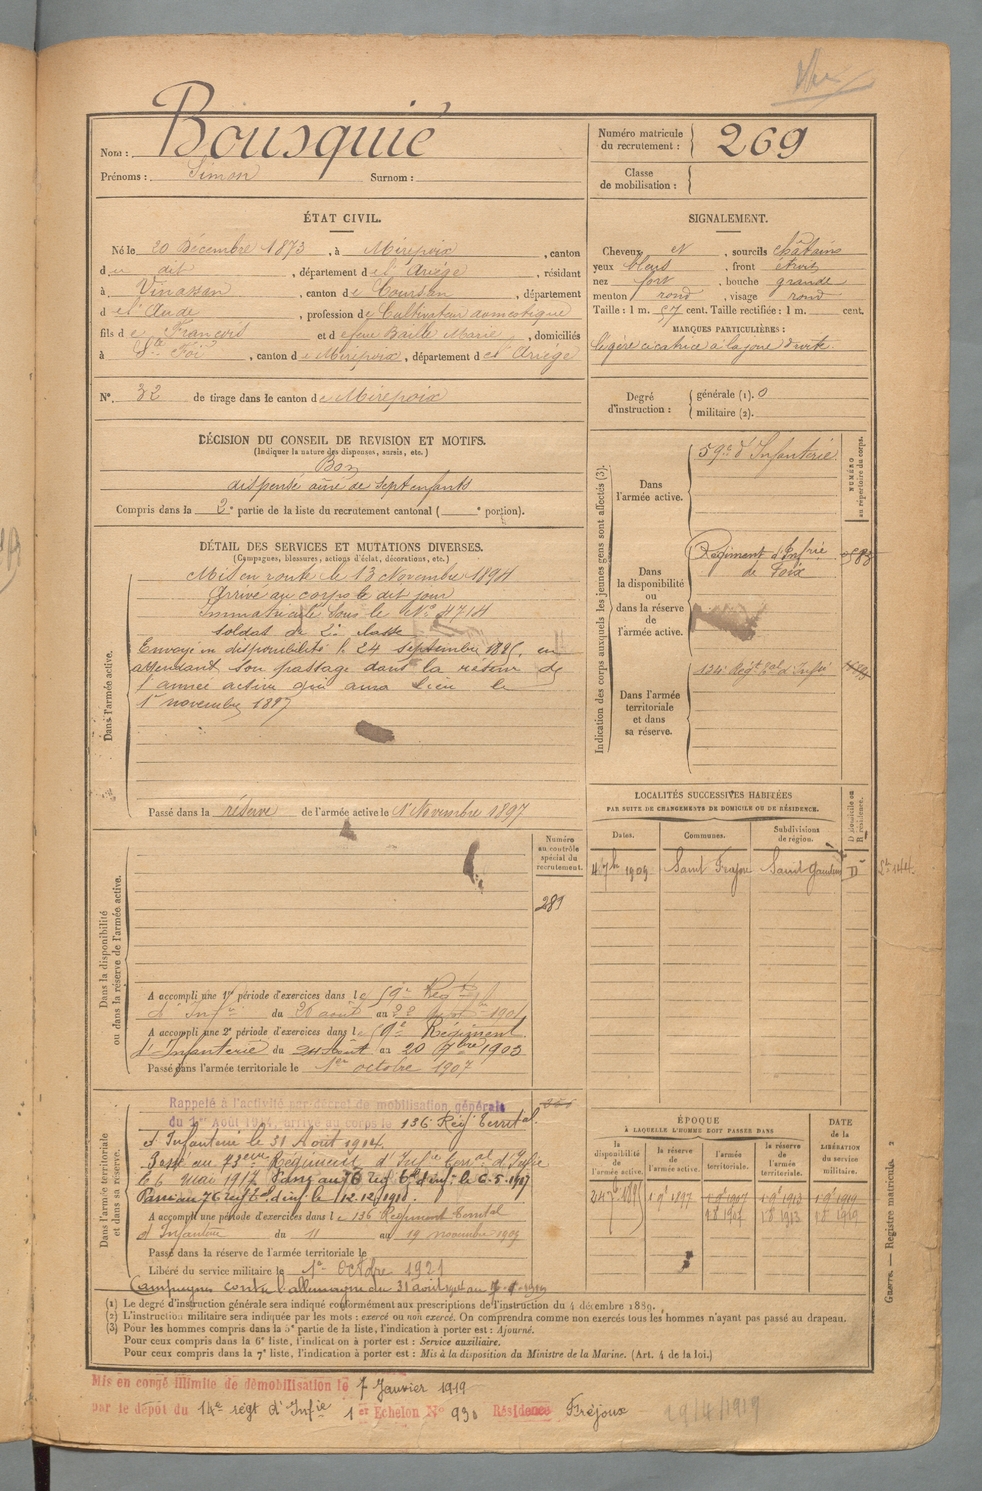 Nom : Bousquié
Prénoms : Simon Surnom :
Numéro matricule du recrutement : 269
Classe de mobilisation :
ÉTAT CIVIL.
Né le 20 Décembre 1873, à Mirepoix, canton
du dit, département de l'Ariège, résidant
à Vinassan, canton de Coursan, département
de l'Aude, profession de Cultivateur domestique
fils de François et de feue Marie, domiciliés
à Ste Foi, canton de Mirepoix, département de l'Ariège
N° 32 de tirage dans le canton de Mirepoix
SIGNALEMENT.
Cheveux et, sourcils châtains
yeux bleus, front étroit
nez fort, bouche grande
menton rond, visage rond
Taille : 1 m. 57 cent. Taille rectifiée : 1 m. cent.
MARQUES PARTICULIÈRES :
légère cicatrice à la joue droite.
Degré d'instruction : générale (1). 0
militaire (2).
DÉCISION DU CONSEIL DE REVISION ET MOTIFS.
(Indiquer la nature des dispenses, sursis, etc.)
Bon
dispensé aîné de sept enfants
Compris dans la 2e partie de la liste du recrutement cantonal ( e portion).
DÉTAIL DES SERVICES ET MUTATIONS DIVERSES.
(Campagnes, blessures, actions d'éclat, décorations, etc.)
Dans l'armée active.
Mis en route le 13 Novembre 1894
Arrivé au corps le dit jour
Immatriculé sous le N° 4714
soldat de 2e classe
Envoyé en disponibilité le 24 septembre 1895, en
attendant son passage dans la réserve de
l'armée active qui aura lieu le
1er novembre 1897
Passé dans la réserve de l'armée active le 1er Novembre 1897
Indication des corps auxquels les jeunes gens sont affectés (3).
NUMÉRO au répertoire du corps.
Dans l'armée active.
59e d'Infanterie
Dans la disponibilité ou dans la réserve de l'armée active.
Régiment d'Infrie
de Foix
Dans l'armée territoriale et dans sa réserve.
Régt d'Infie
LOCALITÉS SUCCESSIVES HABITÉES
PAR SUITE DE CHANGEMENTS DE DOMICILE OU DE RÉSIDENCE.
Dates. Communes. Subdivisions de région. D domicile ou R résidence.
4 7bre 1909 Saint Frajou Saint Gaudens D
Numéro au contrôle spécial du recrutement.
289
Dans la disponibilité ou dans la réserve de l'armée active.
A accompli une 1re période d'exercices dans le 59e Regt
d'Infie du 26 août au 22 1901
A accompli une 2e période d'exercices dans le 59e Régiment
d'Infanterie du 24 Août au 20 7bre 1903
Passé dans l'armée territoriale le 1er octobre 1907
Dans l'armée territoriale et dans sa réserve.
Rappelé à l'activité par décret de mobilisation générale
du 1er Août 1914, arrivé au corps le 136 Rég Territal
d'Infanterie le 31 Août 1914.
Passé au 73ème Régiment d'Infie
le 6 mai 1917 Passé au 76 reg. d'inf. le 6.5.1917
Passé au 76 reg d'inf. le 12.12.1918.
A accompli une période d'exercices dans le 136 Régiment Territal
d'Infanterie du 11 au 19 novembre 1909
Passé dans la réserve de l'armée territoriale le
Libéré du service militaire le 1er Octobre 1921
Campagnes contre l'allemagne du 31 août 1914 au
ÉPOQUE
À LAQUELLE L'HOMME DOIT PASSER DANS
la disponibilité de l'armée active. la réserve de l'armée active. l'armée territoriale. la réserve de l'armée territoriale.
DATE de la LIBÉRATION du service militaire.
24 7bre 1895 1 9bre 1897 1 9bre 1907 1 9bre 1913 1 9bre 1919
1 8bre 1907 1 8bre 1913 1 8bre 1919
Guerre. — Registre matricule. 2
(1) Le degré d'instruction générale sera indiqué conformément aux prescriptions de l'instruction du 4 décembre 1889.
(2) L'instruction militaire sera indiquée par les mots : exercé ou non exercé. On comprendra comme non exercés tous les hommes n'ayant pas passé au drapeau.
(3) Pour les hommes compris dans la 5e partie de la liste, l'indication à porter est : Ajourné.
Pour ceux compris dans la 6e liste, l'indication à porter est : Service auxiliaire.
Pour ceux compris dans la 7e liste, l'indication à porter est : Mis à la disposition du Ministre de la Marine. (Art. 4 de la loi.)
Mis en congé illimité de démobilisation le 7 Janvier 1919
par le dépôt du 14e régt d'Infie 1er Echelon N° 930 Résidence Fréjoux 29/4/1919